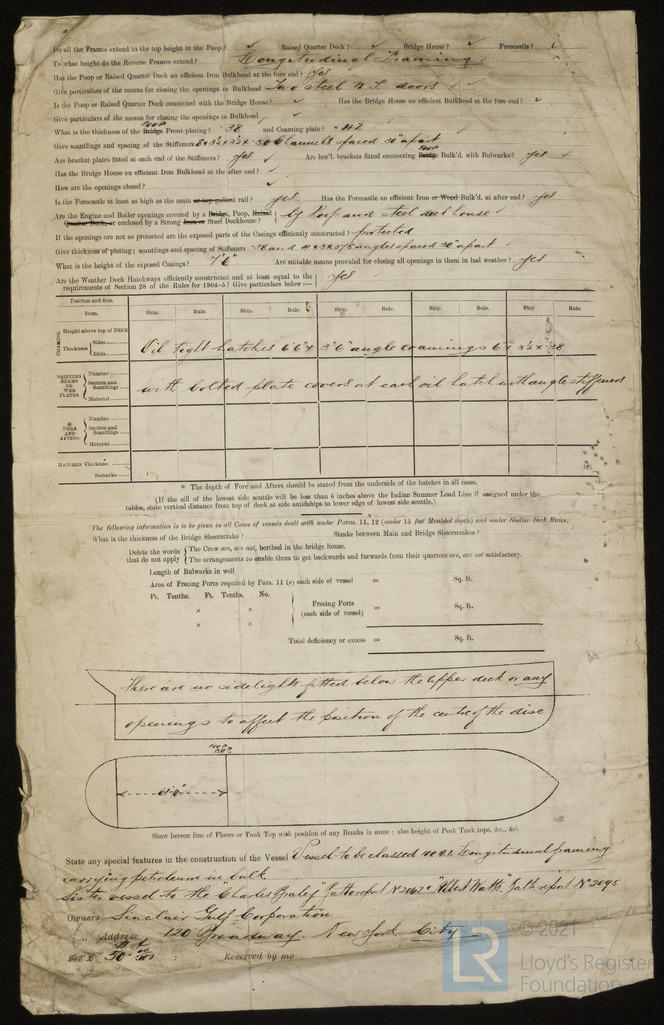 Do all the Frames extend to the top height in the Poop? ✓ Raised Quarter Deck? ✓ Bridge House? ✓ Forecastle? ✓
To what height do the Reverse Frames extend? Longitudinal Framing
Has the Poop or Raised Quarter Deck an efficient Iron Bulkhead at the fore end? Yes
Give particulars of the means for closing the openings in Bulkhead Two steel W.T. doors ✓
Is the Poop or Raised Quarter Deck connected with the Bridge House? ✓ Has the Bridge House an efficient Bulkhead at the fore end? ✓
Give particulars of the means for closing the openings in Bulkhead ✓
What is the thickness of the Bridge Poop Front plating? .38 and Coaming plate? .42
Give scantlings and spacing of the Stiffeners Channels spaced 30" apart
Are bracket plates fitted at each end of the Stiffeners? Yes ✓ Are hor'l. brackets fitted connecting Bridge Poop Bulk'd. with Bulwarks? Yes ✓
Has the Bridge House an efficient Iron Bulkhead at the after end? ✓
How are the openings closed? ✓
Is the Forecastle at least as high as the main or top-gallant rail? Yes Has the Forecastle an efficient Iron or Wood Bulk'd. at after end? Yes
Are the Engine and Boiler openings covered by a Bridge, Poop, Raised
Quarter Deck, or enclosed by a Strong Iron or Steel Deckhouse? by Poop and steel deck house ✓
If the openings are not so protected are the exposed parts of the Casings efficiently constructed? protected
Give thickness of plating; scantlings and spacing of Stiffeners angles spaced 30" apart ✓
What is the height of the exposed Casings? 7'6" Are suitable means provided for closing all openings in them in bad weather? Yes
Are the Weather Deck Hatchways efficiently constructed and at least equal to the
requirements of Section 28 of the Rules for 1904-5? Give particulars below:— Yes
Position and Size.
Item. Ship. Rule. Ship. Rule. Ship. Rule. Ship. Rule. Ship Rule.
COAMING Height above top of DECK
Thickness Sides
Ends
Oil tight hatches 6'6" x 3'6" angle coamings 6" x 3½ x .38
SHIFTING BEAMS OR WEB PLATES. Number
Section and Scantlings
Material
with bolted plate covers at each oil hatch with angle stiffeners
* FORE AND AFTERS. Number
Section and Scantlings
Material
HATCHES Thickness
Remarks
* The depth of Fore and Afters should be stated from the underside of the hatches in all cases.
(If the sill of the lowest side scuttle will be less than 6 inches above the Indian Summer Load Line if assigned under the
tables, state vertical distance from top of deck at side amidships to lower edge of lowest side scuttle.)
The following information is to be given in all Cases of vessels dealt with under Paras. 11, 12 (under 15 feet Moulded depth) and under Shelter Deck Rules.
What is the thickness of the Bridge Sheerstrake? Strake between Main and Bridge Sheerstrakes?
Delete the words that do not apply The Crew are, are not, berthed in the bridge house.
The arrangements to enable them to get backwards and forwards from their quarters are, are not satisfactory.
Length of Bulwarks in well
Area of Freeing Ports required by Para. 11 (e) each side of vessel = Sq. ft.
Ft. Tenths. Ft. Tenths. No.
× × Freeing Ports (each side of vessel) = Sq. ft.
× ×
Total deficiency or excess = Sq. ft.
There are no sidelights fitted below the upper deck or any
openings to affect the position of the centre of the disc
Show hereon line of Floors or Tank Top with position of any Breaks in same; also height of Peak Tank tops, &c., &c.
State any special features in the construction of the Vessel Vessel to be classed 100 A.1. Longitudinal framing
carrying petroleum in bulk
Sister vessel to the Charles Braley "Albert Watts"
Owners Sinclair Gulf Corporation
„ Address 120 Broadway New York City
Fee £ 50 : : Received by me
LR
© 2021
Lloyd's Register
Foundation